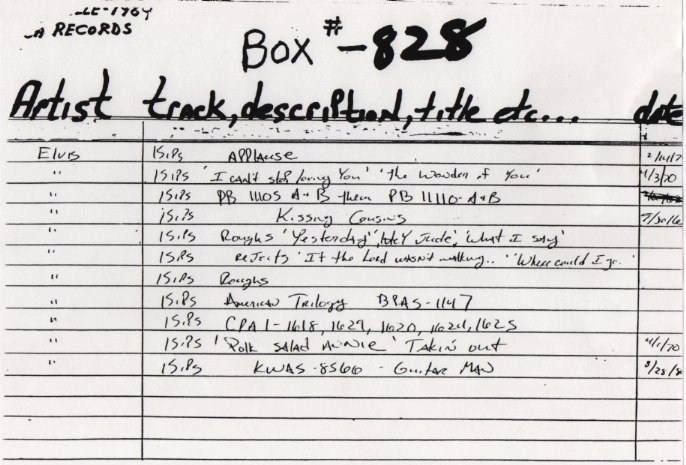 LE-1764
A RECORDS
Box # -828
Artist track, description, title etc... date
Elvis 1S.Ps APPLAUSE
" 1S.Ps 'I can't stop loving You' 'the wonder of You' 4/3/70
" 1S.Ps PB 11105 A+B then PB 11110-A+B
" 1S.Ps Kissing Cousins
" 1S.Ps Roughs 'Yesterday', 'Hey Jude', 'what I say'
" 1S.Ps rejects 'If the Lord wasn't walking..' 'Where could I go..'
" 1S.Ps Roughs
" 1S.Ps American Trilogy BPAS-1147
" 1S.Ps CPA1-1618, 1629, 1620, 1624, 1625
" 1S.Ps 'Polk Salad Annie' Takin' out 4/1/70
" 1S.Ps KWAS-8566 - Guitar Man